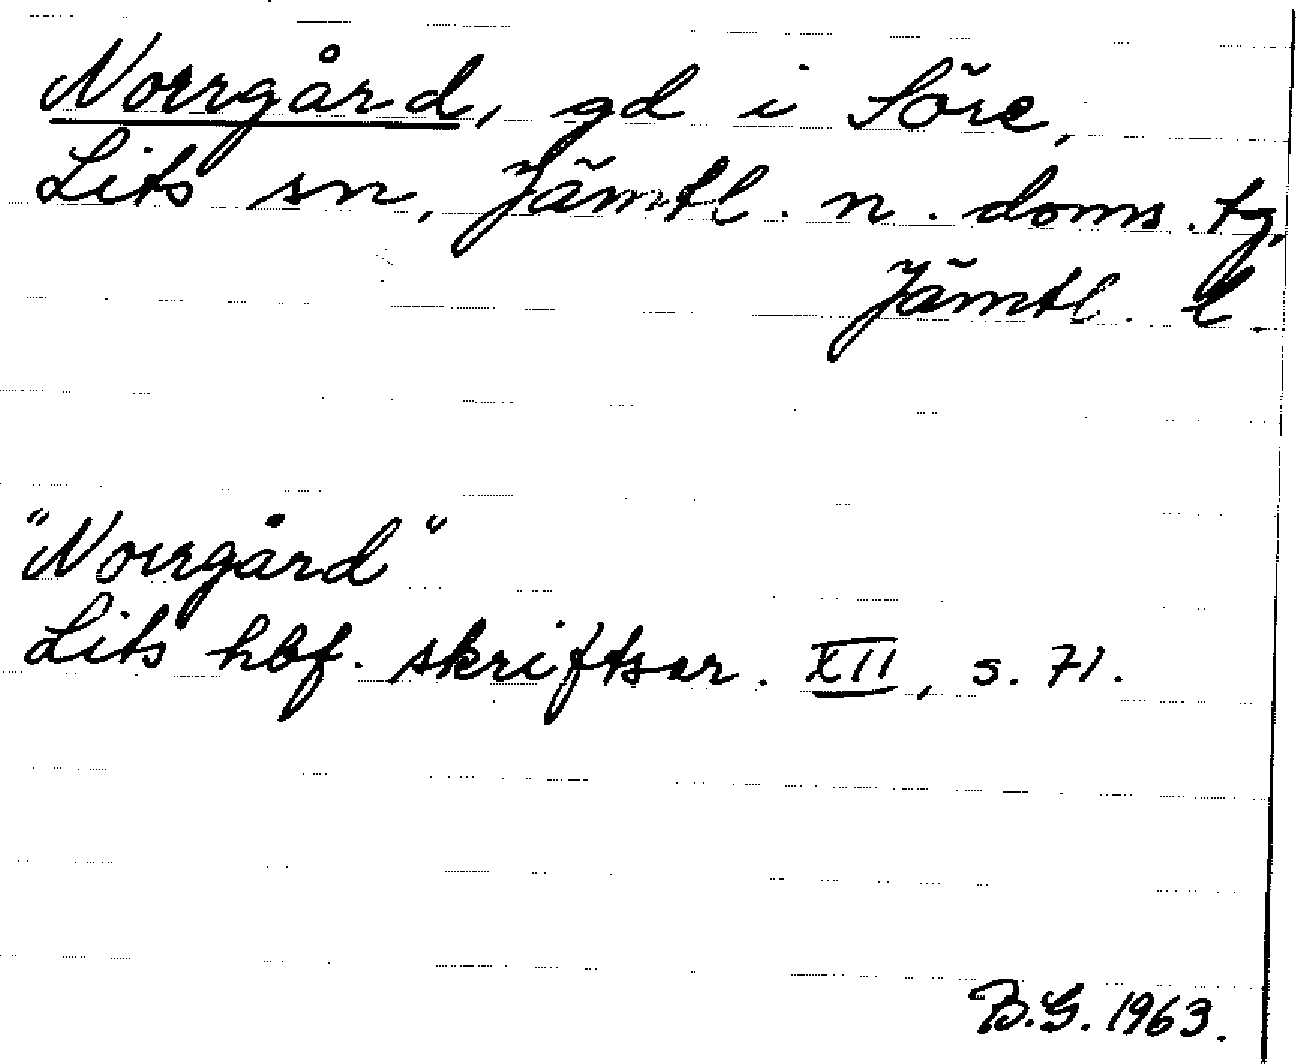 Norrgård, gd i Söre,
Lits sn, Jämtl. n. doms.tg,
Jämtl. l.
"Norrgård"
Lits hbf. skriftser. XII, s. 71.
B.G. 1963.